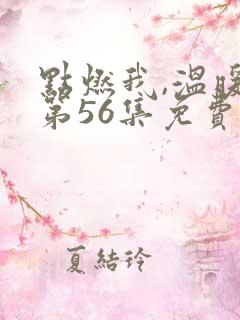 點燃我,溫暖
第56集免費
夏結玲